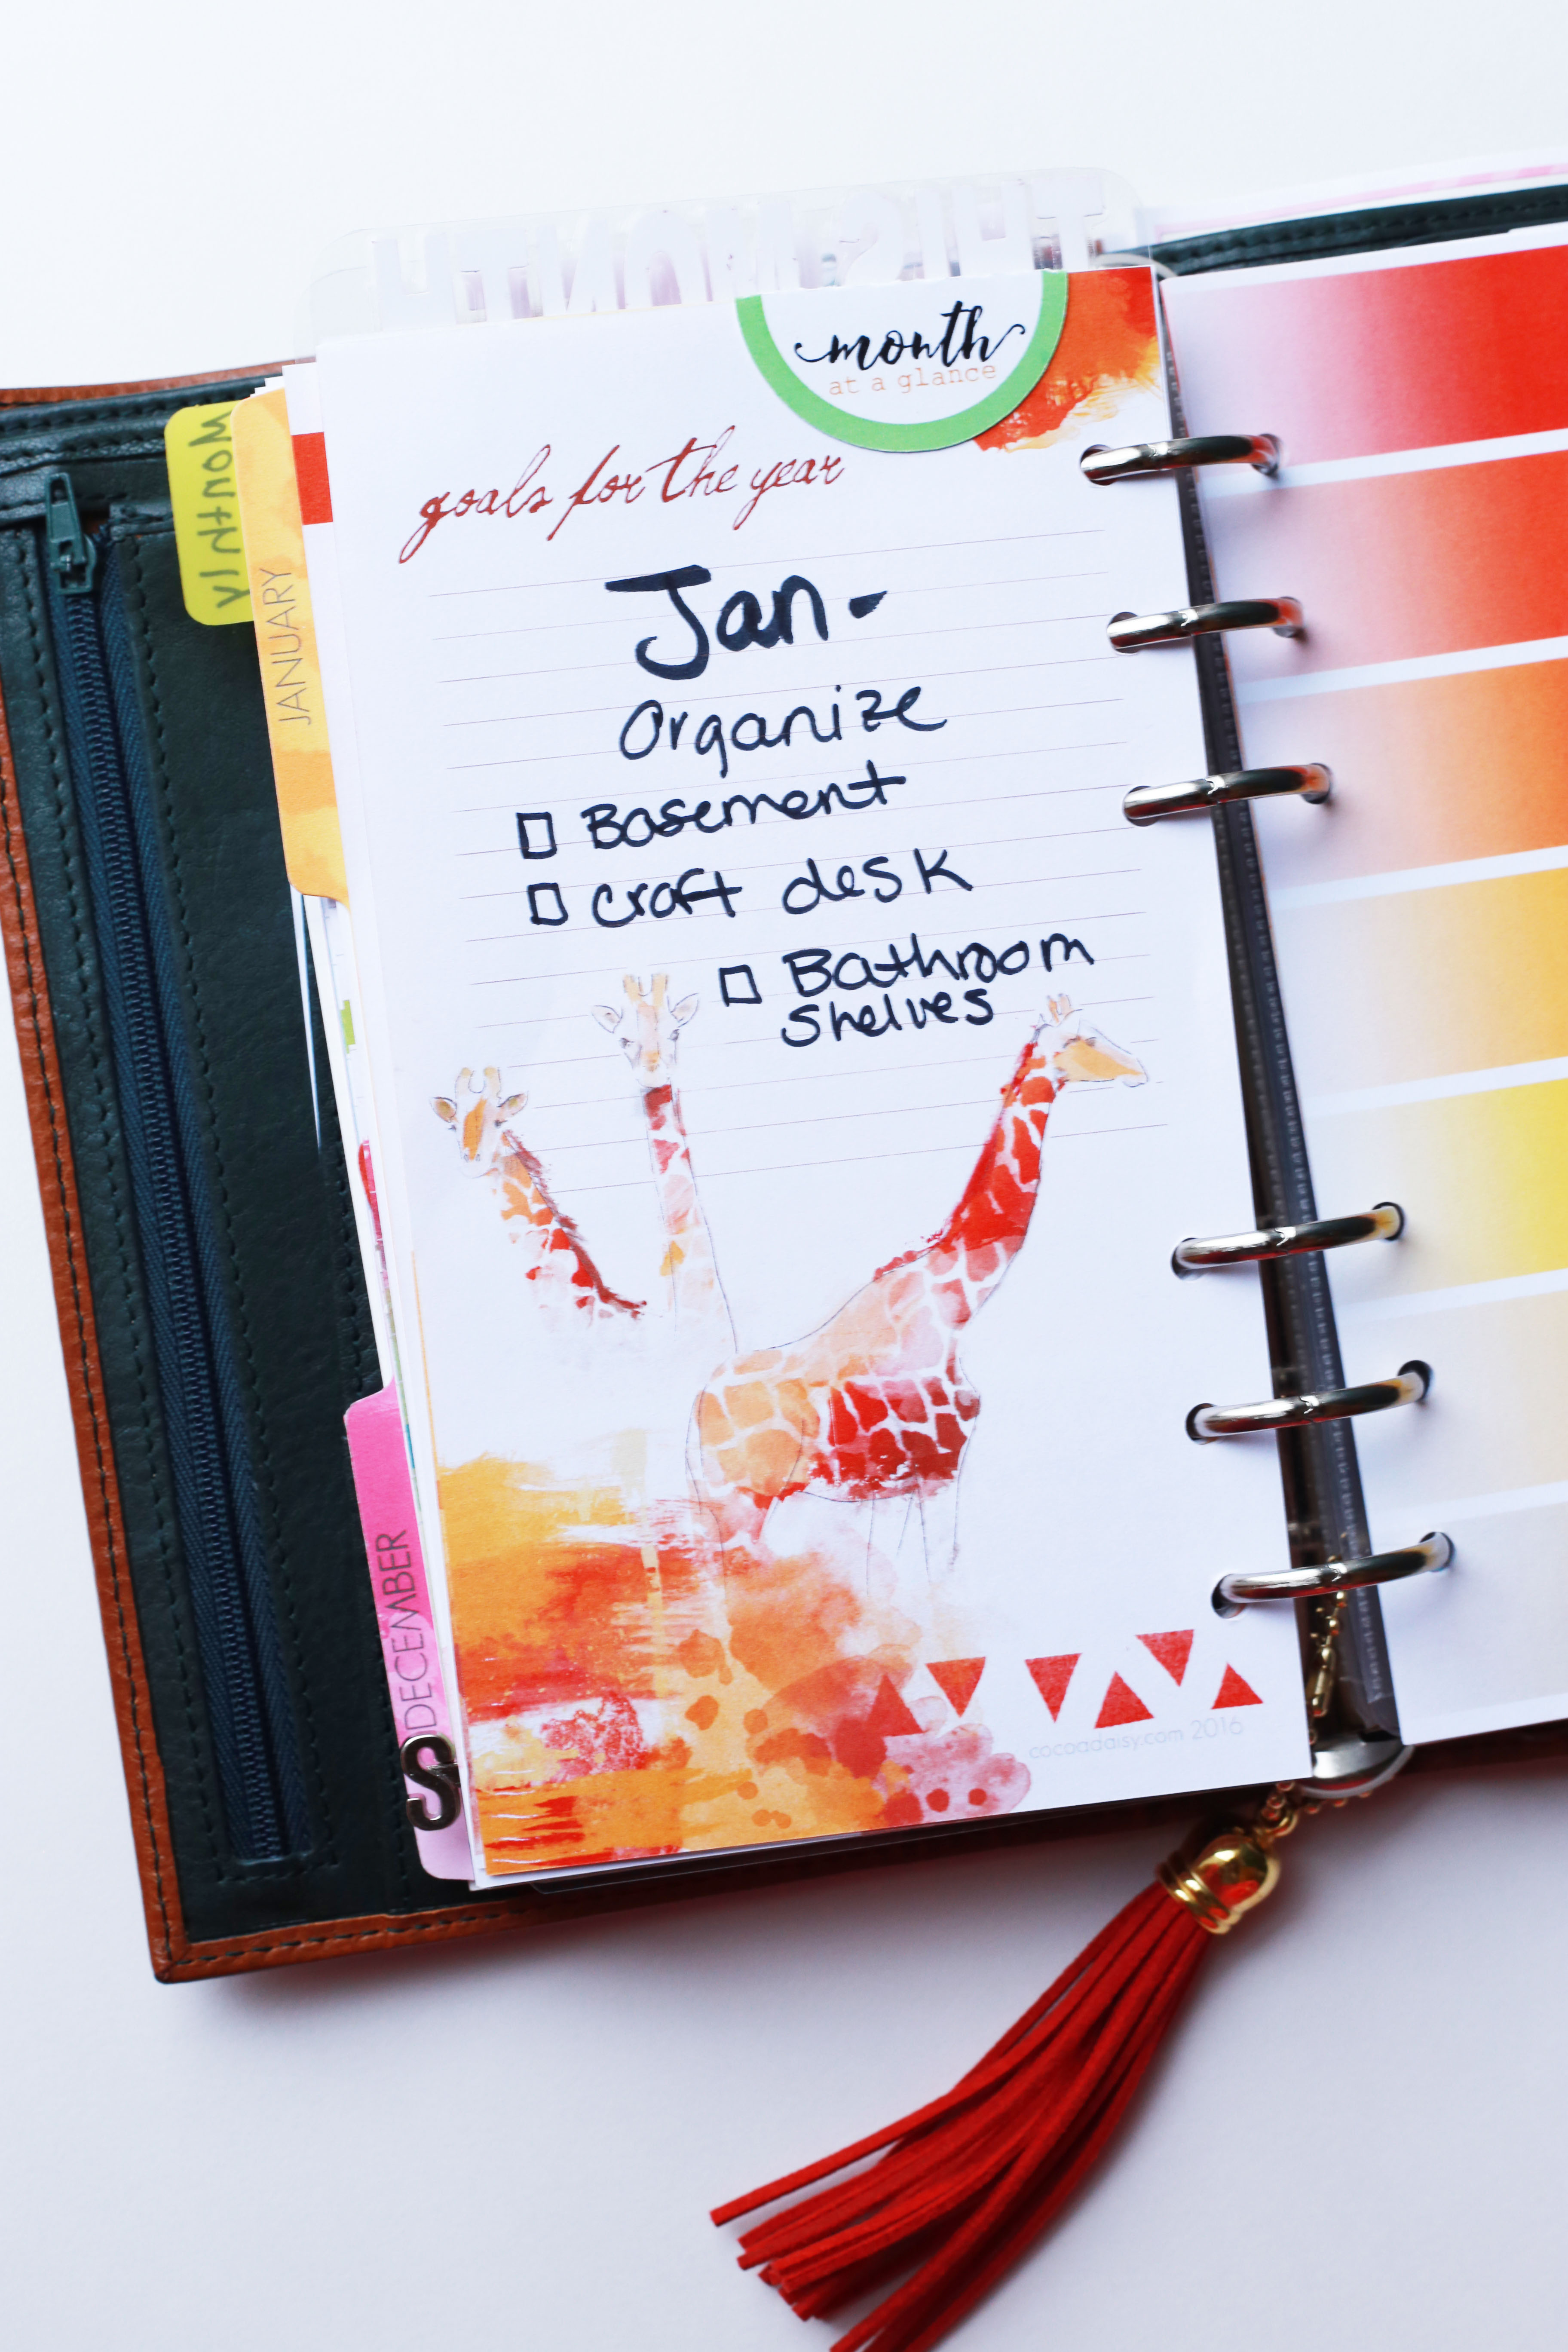 THIS MONTH
month
at a glance
goals for the year
Monthly
JANUARY
Jan-
Organize
Basement
craft desk
Bathroom
Shelves
DECEMBER
S
cocoadaisy.com 2016